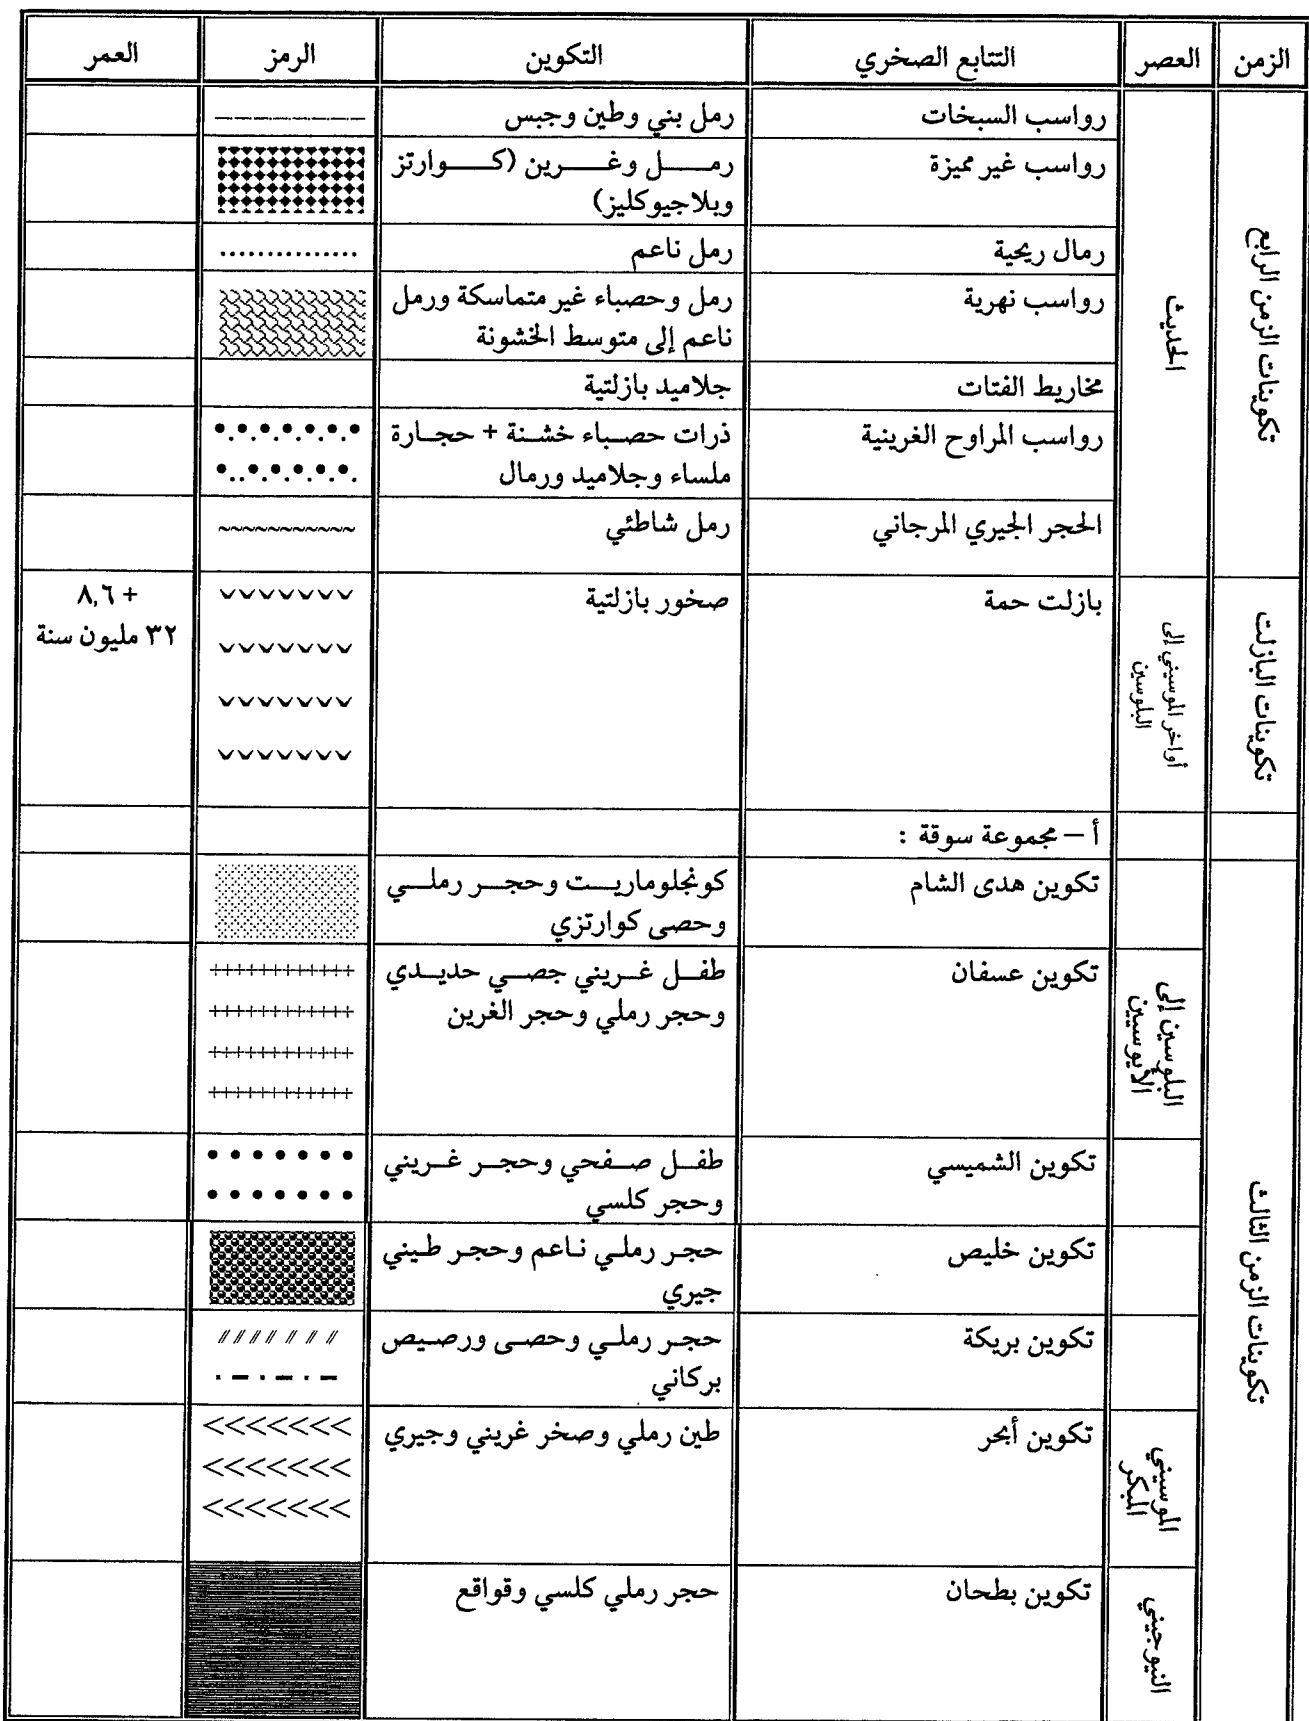 الزمن العصر التتابع الصخري التكوين الرمز العمر
تكوينات الزمن الرابع
الحديث
رواسب السبخات رمل بني وطين وجبس
رواسب غير مميزة رمل وغرين (كوارتز
وبلاجيوكليز)
رمال ريحية رمل ناعم
رواسب نهرية رمل وحصباء غير متماسكة ورمل
ناعم إلى متوسط الخشونة
مخاريط الفتات جلاميد بازلتية
رواسب المراوح الغرينية ذرات حصباء خشنة + حجارة
ملساء وجلاميد ورمال
الحجر الجيري المرجاني رمل شاطئي
تكوينات البازلت
أواخر الموسيني إلى
البلوسين
بازلت حمة صخور بازلتية ٨,٦ +
٣٢ مليون سنة
أ – مجموعة سوقة :
تكوينات الزمن الثالث
تكوين هدى الشام كونجلوماريت وحجر رملي
وحصى كوارتزي
البلوسين إلى
الأيوسيين
تكوين عسفان طفل غريني جصي حديدي
وحجر رملي وحجر الغرين
تكوين الشميسي طفل صفحي وحجر غريني
وحجر كلسي
تكوين خليص حجر رملي ناعم وحجر طيني
جيري
تكوين بريكة حجر رملي وحصى ورصيص
بركاني
الموسيني
المبكر
تكوين أبحر طين رملي وصخر غريني وجيري
النيوجيني
تكوين بطحان حجر رملي كلسي وقواقع